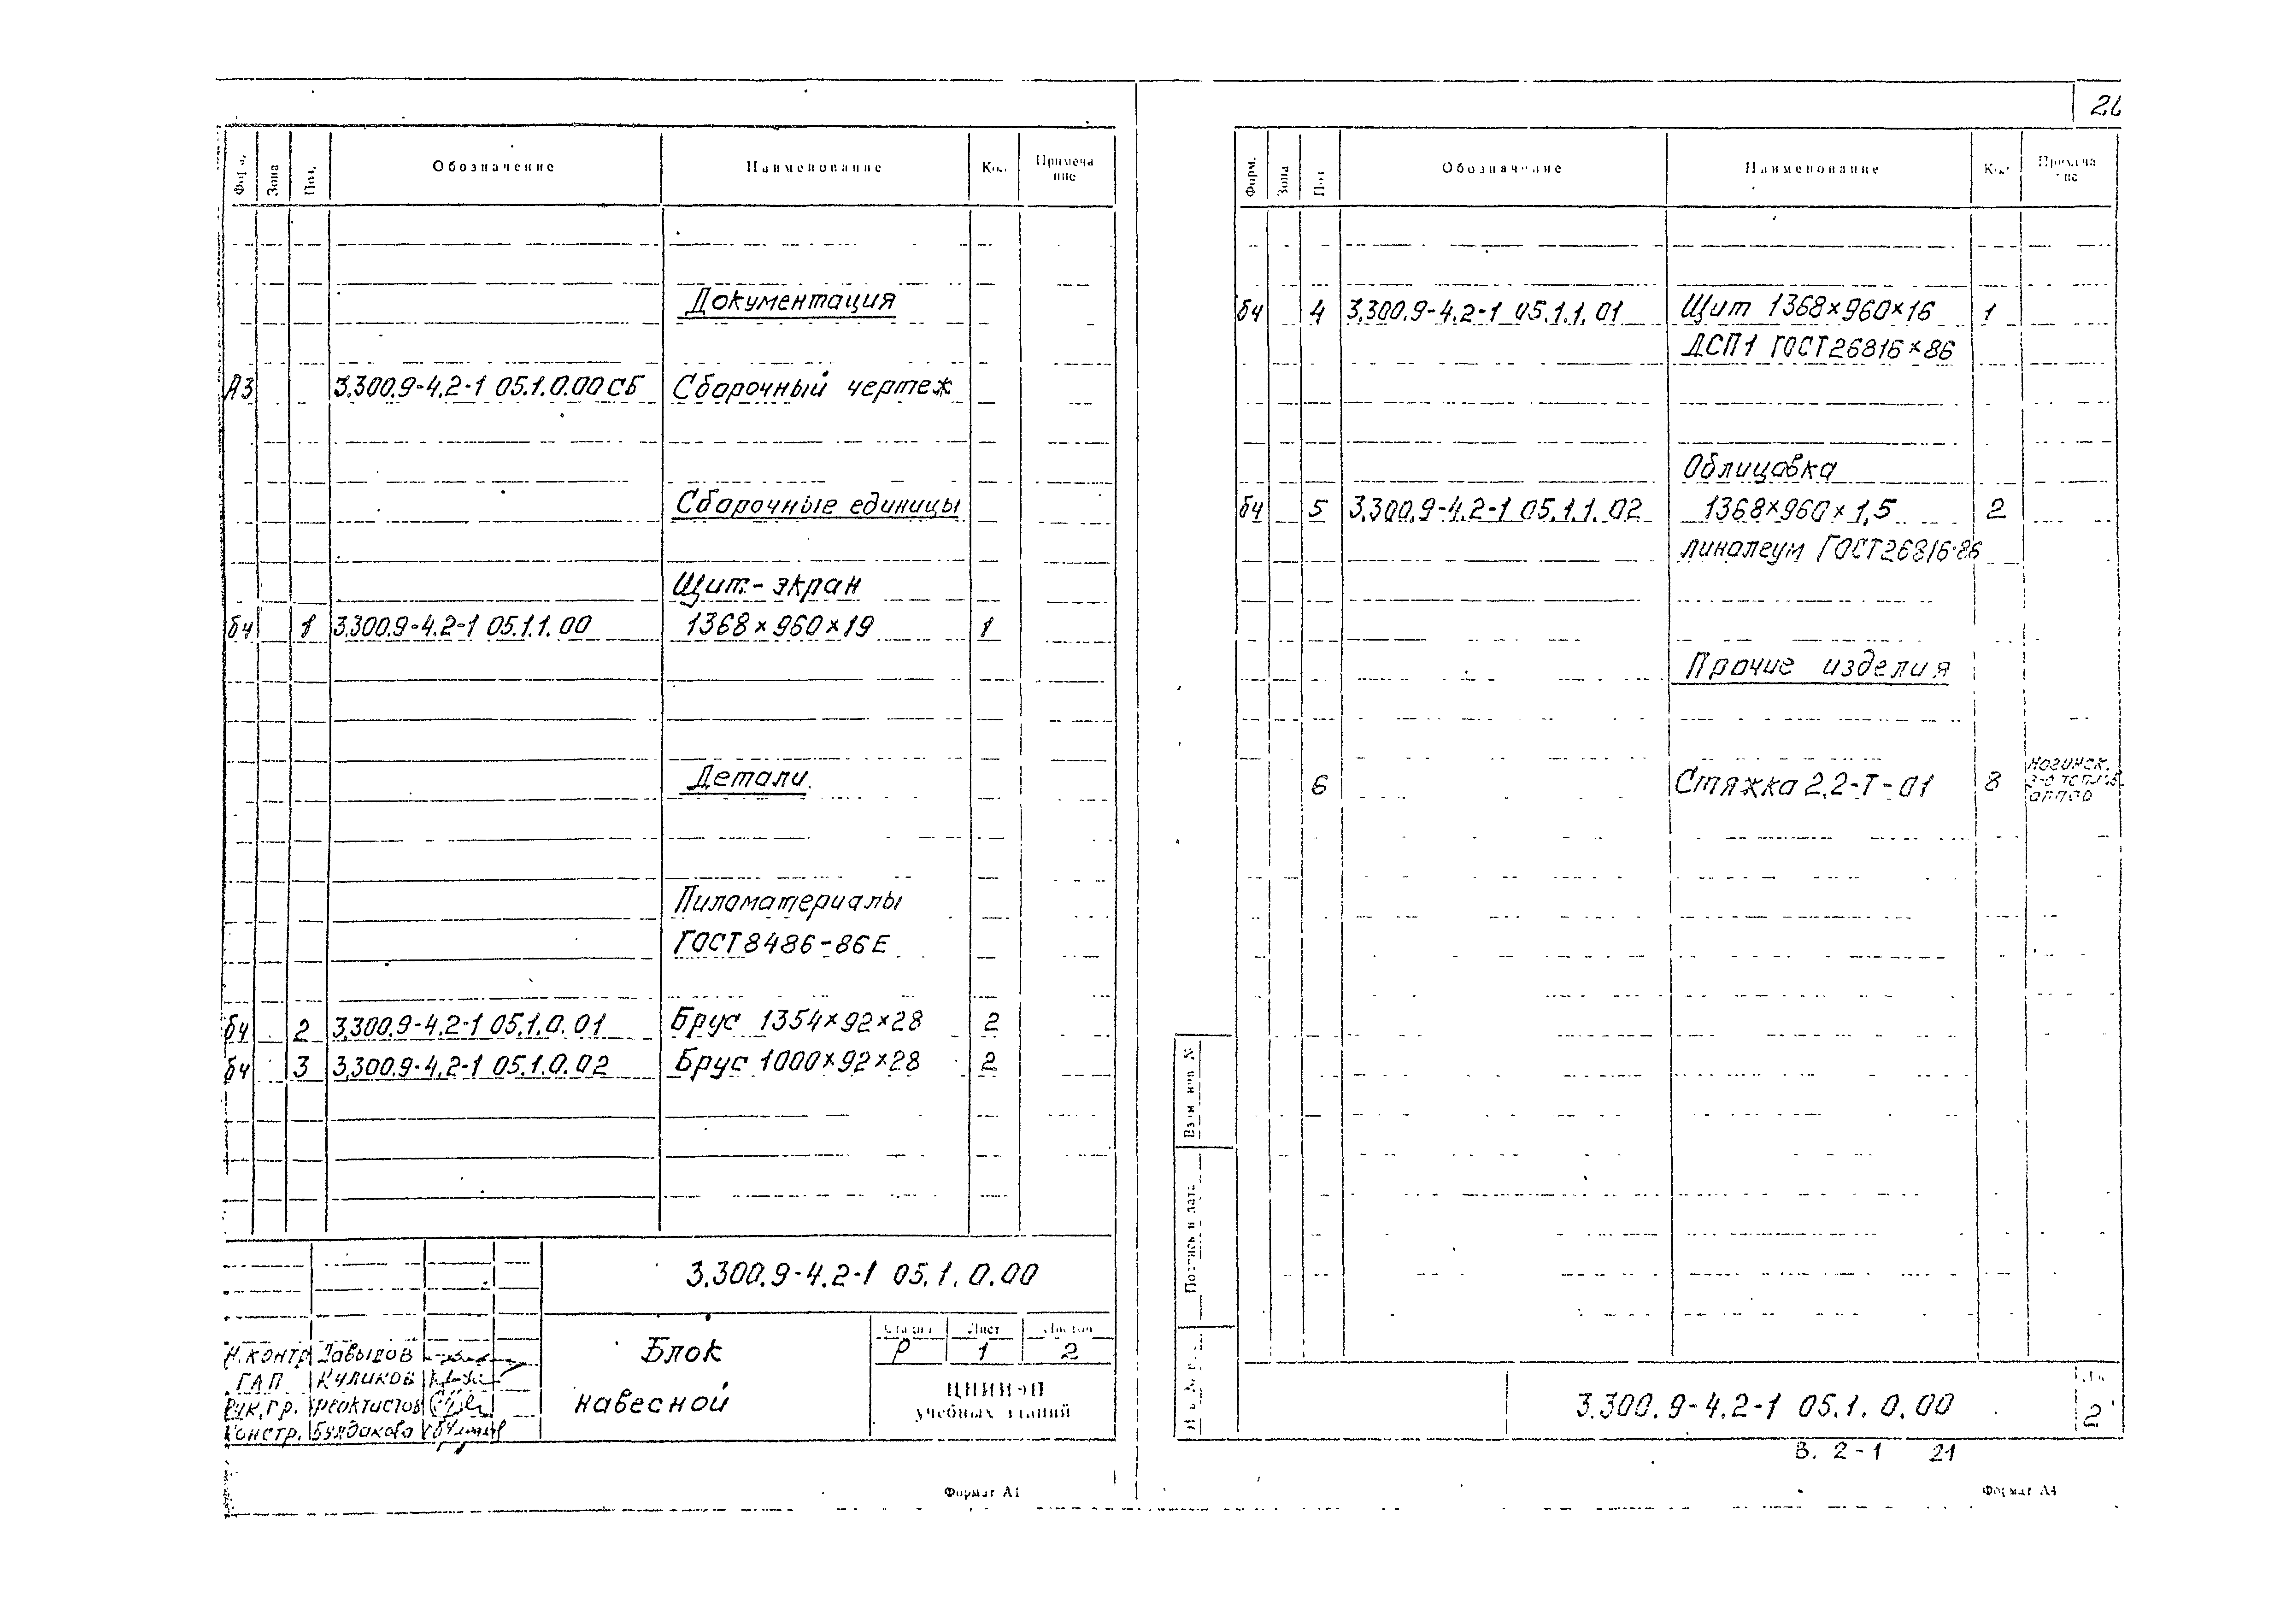 Форм. Зона Поз. Обозначение Наименование Кол. Примеча
ние
Документация
А3 3.300.9-4.2-1 05.1.0.00СБ Сборочный чертеж
Сборочные единицы
Щит-экран
бч 1 3.300.9-4.2-1 05.1.1.00 1368×960×19 1
Детали
Пиломатериалы
ГОСТ8486-86Е
бч 2 3.300.9-4.2-1 05.1.0.01 Брус 1354×92×28 2
бч 3 3.300.9-4.2-1 05.1.0.02 Брус 1000×92×28 2
3.300.9-4.2-1 05.1.0.00
Н.контр Давыдов
ГАП Куликов
Рук.гр. Феоктистов
Констр. Булдакова
Блок
навесной
Стадия Лист Листов
Р 1 2
ЦНИИЭП
учебных зданий
Формат А4
26
Форм. Зона Поз Обозначение Наименование Кол Примеча
ние
бч 4 3.300.9-4.2-1 05.1.1.01 Щит 1368×960×16 1
ДСП1 ГОСТ26816×86
Облицовка
бч 5 3.300.9-4.2-1 05.1.1.02 1368×960×1,5 2
линолеум ГОСТ26816-86
Прочие изделия
6 Стяжка 2.2-Т-01 8 Ногинск.
Взам инв №
Подпись и дата
3.300.9-4.2-1 05.1.0.00
2
В. 2-1 21
Формат А4